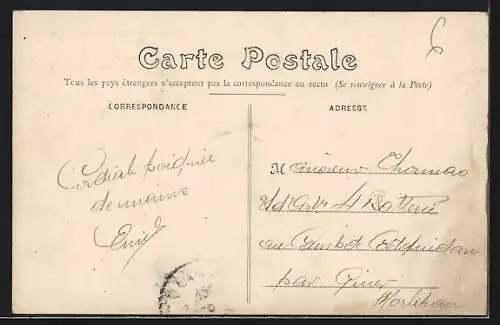 6
Carte Postale
Tous les pays étrangers n'acceptent pas la correspondance au recto (Se renseigner à la Poste)
CORRESPONDANCE
ADRESSE
Cordiale poignée
de mains
Emile
Monsieur Thomas
4 Batterie
au Coëtquidan
par Guer
Morbihan